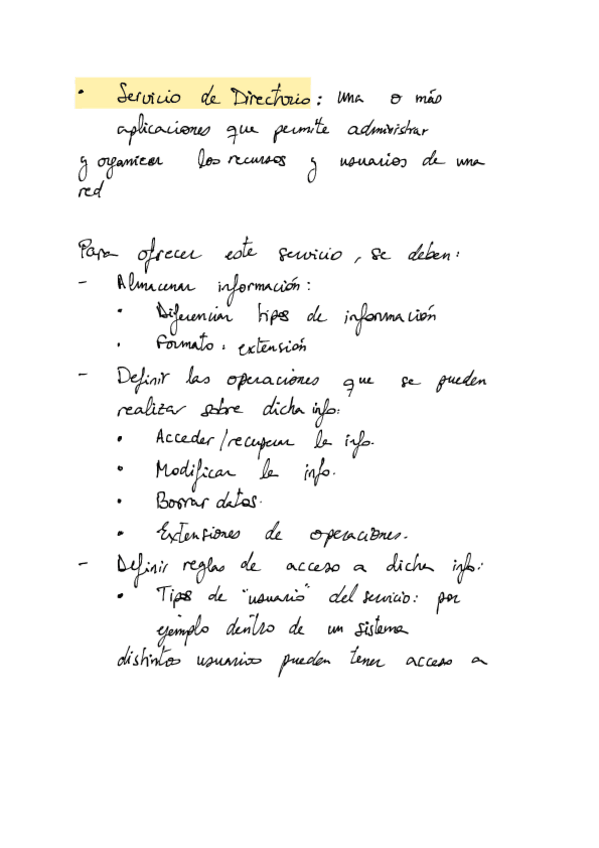 • Servicio de Directorio: una o más
aplicaciones que permite administrar
y organizar los recursos y usuarios de una
red
Para ofrecer este servicio, se deben:
- Almacenar información:
• Diferenciar tipos de información
• Formato: extensión
- Definir las operaciones que se pueden
realizar sobre dicha info:
• Acceder/recuperar la info.
• Modificar la info.
• Borrar datos.
• Extensiones de operaciones.
- Definir reglas de acceso a dicha info:
• Tipos de "usuario" del servicio: por
ejemplo dentro de un sistema
distintos usuarios pueden tener acceso a